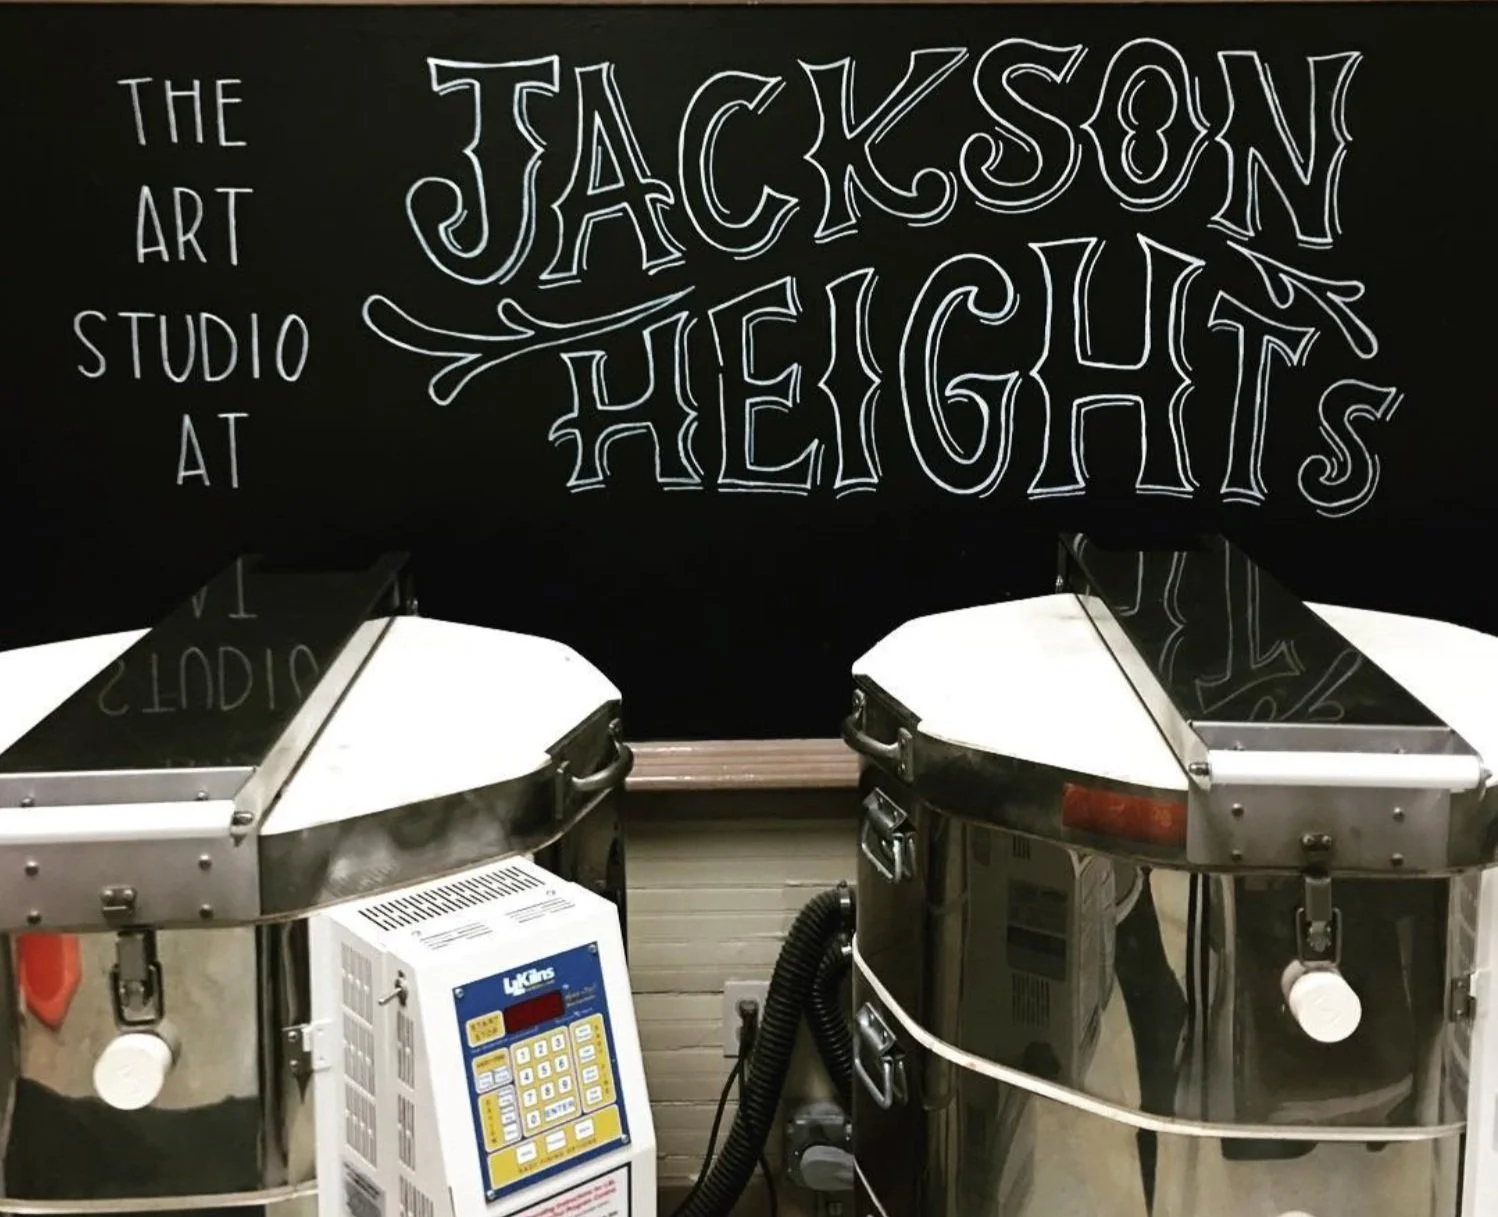 THE
ART
STUDIO
AT
JACKSON
HEIGHTS
L&L Kilns
START
STOP
1 2 3
4 5 6
7 8 9
0 ENTER